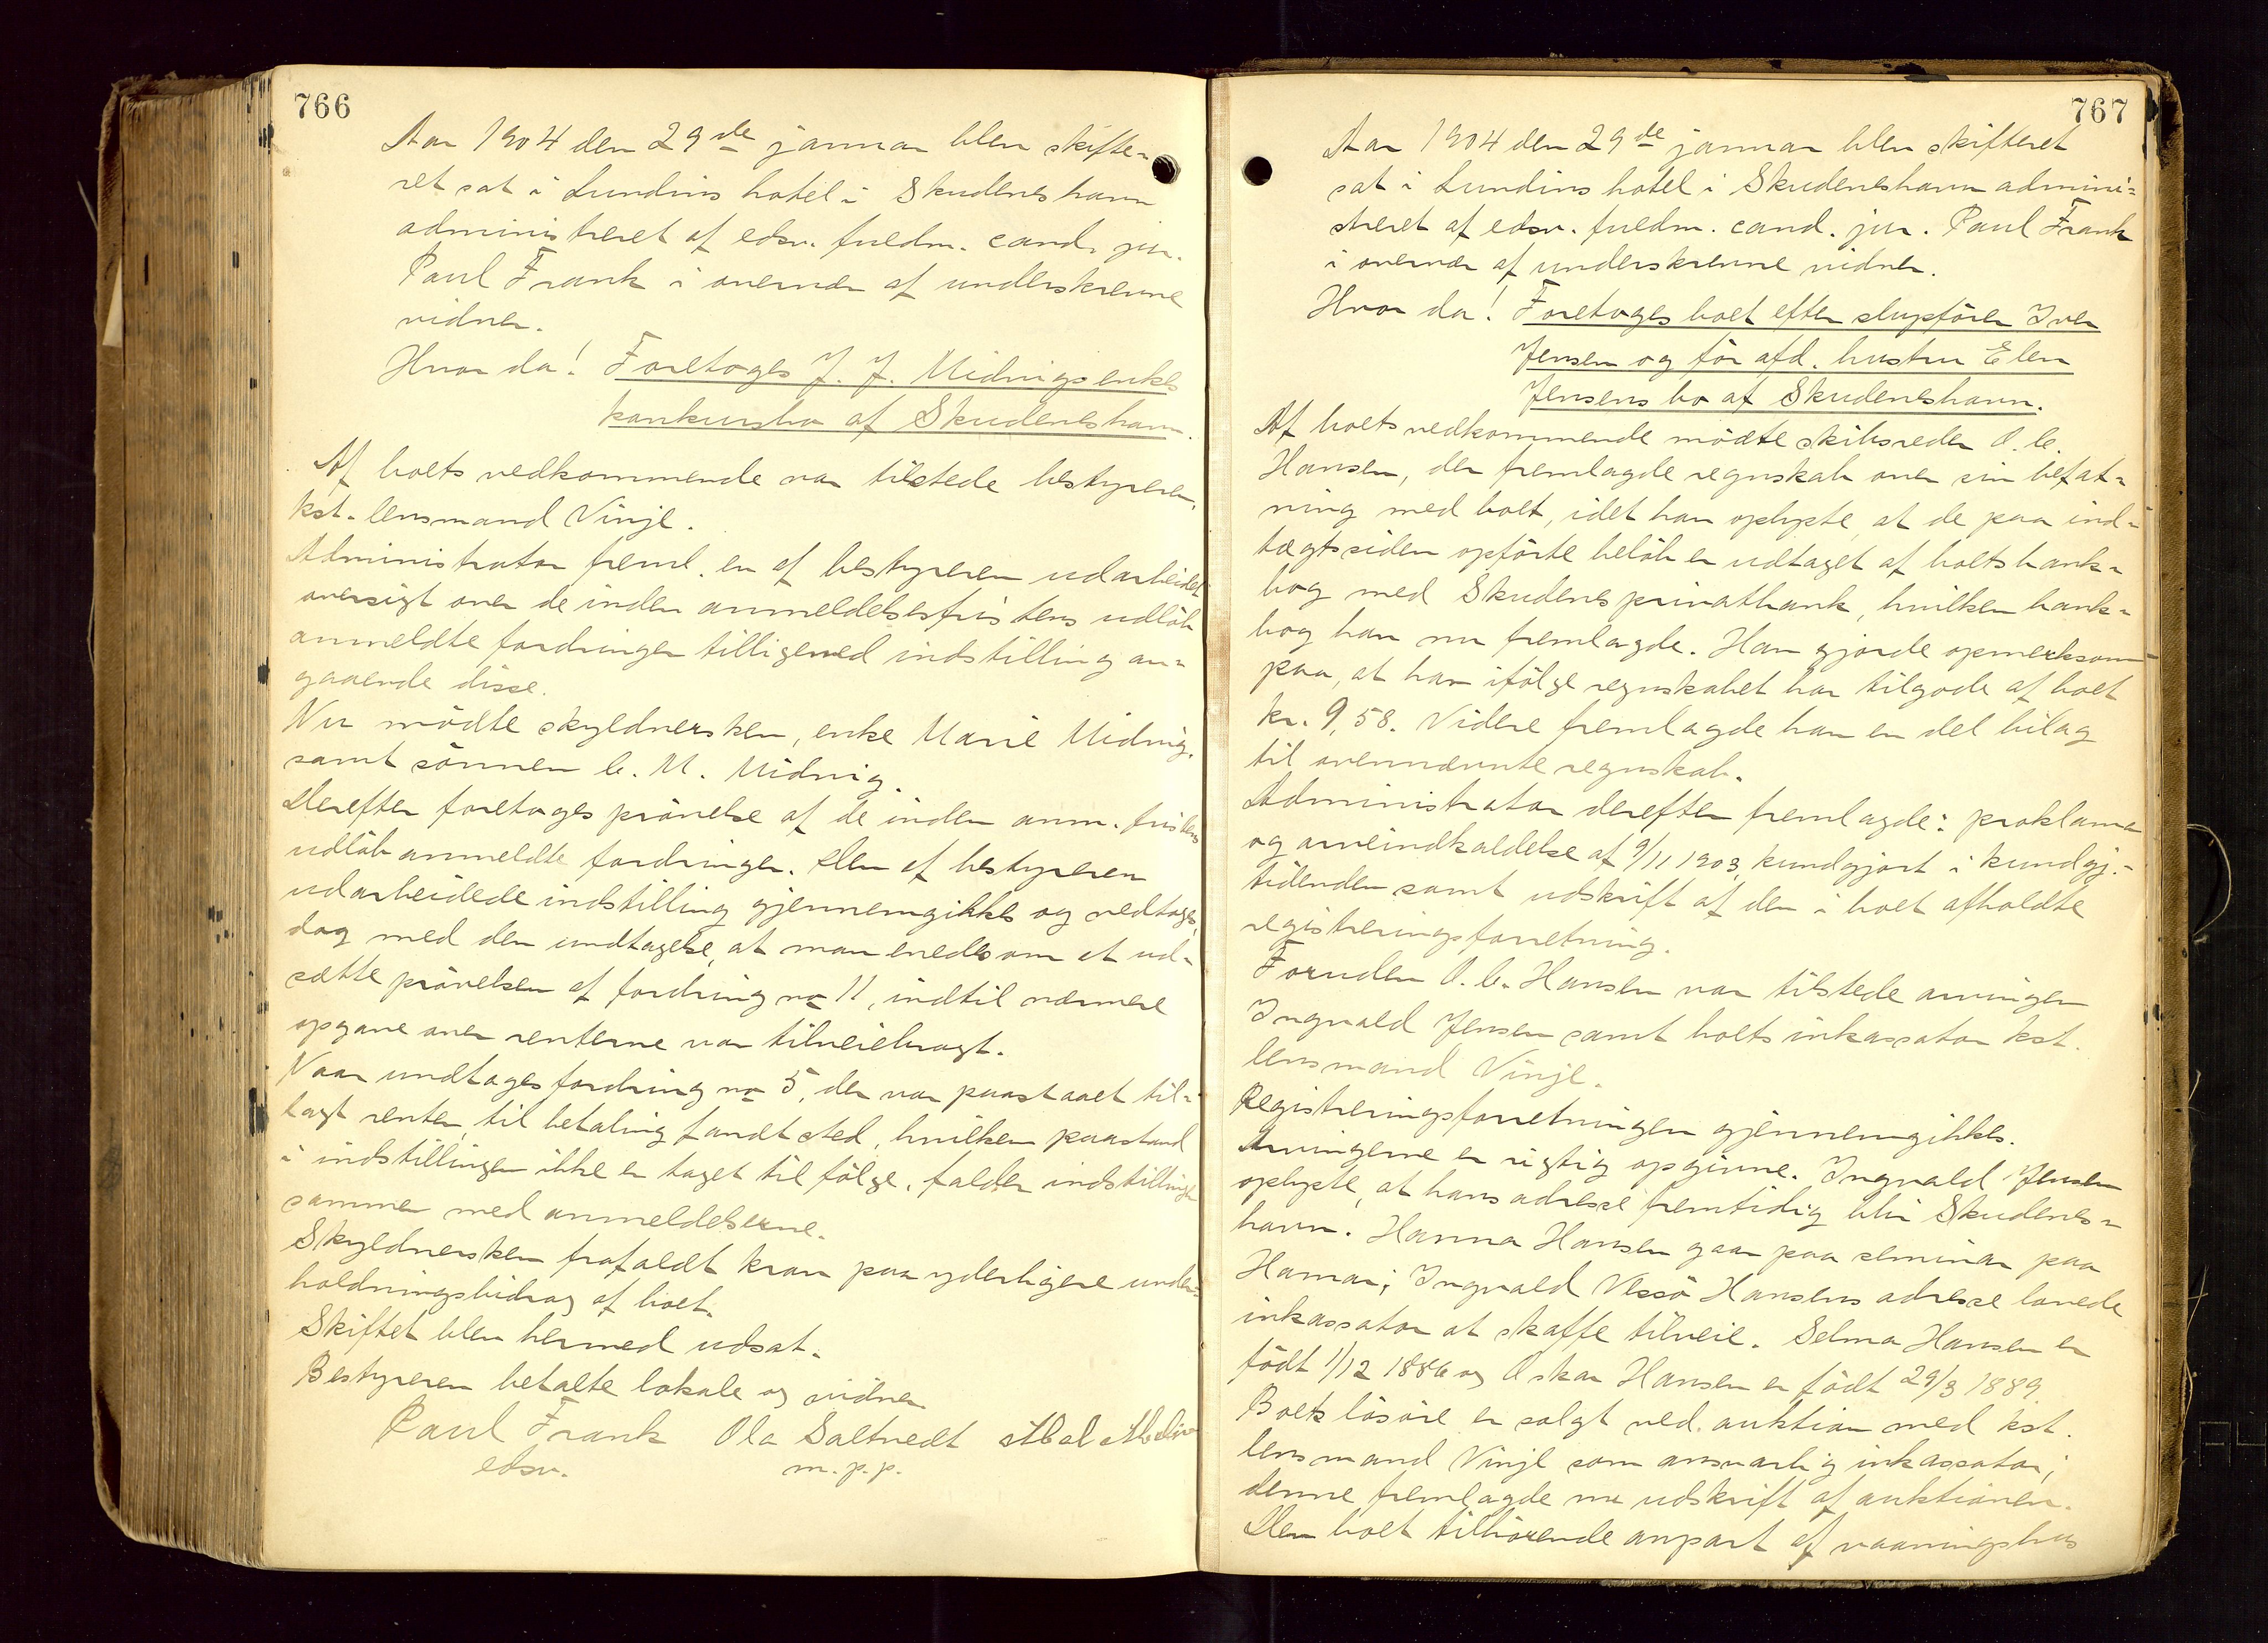 766
Aar 1904 den 29de januar blev skifte-
ret sat i Lundins hotel i Skudeneshavn
administreret af edsv. fuldm. cand. jur.
Paul Frank i overvær af underskrevne
vidner.
Hvor da! Foretoges J. J. Midvigs enkes
konkursbo af Skudeneshavn.
Af boets vedkommende var tilstede bestyreren,
kst. lensmand Vinje.
Administrator freml. en af bestyreren udarbeidet
oversigt over de inden anmeldelsesfristens udløb
anmeldte fordringer tilligemed indstilling an-
gaaende disse.
Nu mödte skyldnersken, enke Marie Midvig,
samt sönnen C. M. Midvig
Derefter foretoges prövelse af de inden anm. fristens
udlöb anmeldte fordringer. Den af bestyreren
udarbeidede indstilling gjennemgikkes og vedtoges,
dog med den undtagelse, at man enedes om at ud-
sætte prövelsen af fordring no 11, indtil nærmere
opgave over renterne var tilveiebragt.
Naar undtages fordring no 5, der var paastaaet til-
lagt renter, til betaling fandt sted, hvilken paastand
i indstillingen ikke er taget til fölge, falder indstillingen
sammen med anmeldelserne.
Skyldnersken frafaldt krav paa yderligere under-
holdningsbidrag af boet.
Skiftet blev hermed udsat.
Bestyreren betalte lokale og vidner
Paul Frank Ola Saltvedt Abel
edsv. m. p. p.
767
Aar 1904 den 29de januar blev skifteret
sat i Lundins hotel i Skudeneshavn admini-
streret af edsv. fuldm. cand. jur. Paul Frank
i overvær af underskrevne vidner.
Hvor da! Foretoges boet efter slupförer Iver
Jensen og för afd. hustru Elen
Jensens bo af Skudeneshavn.
Af boets vedkommende mödte skibsreder O. C.
Hansen, der fremlagde regnskab over sin befat-
ning med boet, idet han oplyste, at de paa ind-
tægtssiden opförte belöb er udtaget af boets bank-
bog med Skudenes privatbank, hvilken bank-
bog han nu fremlagde. Han gjorde opmerksom
paa, at han ifölge regnskabet har tilgode af boet
kr. 9,58. Videre fremlagde han en del bilag
til ovennævnte regnskab.
Administrator derefter fremlagde: proklama
og arveindkaldelse af 9/11 1903, kundgjort i kundgj.-
tidenden samt udskrift af den i boet afholdte
registreringsforretning.
Foruden O. C. Hansen var tilstede arvingen
Ingvald Jensen samt boets inkassator kst.
lensmand Vinje.
Registreringsforretningen gjennemgikkes.
Arvingerne er rigtig opgivne. Ingvald Jensen
oplyste, at hans adresse fremtidig blir Skudenes-
havn. Hanna Hansen gaar paa seminar paa
Hamar; Ingvald Vessö Hansens adresse lovede
inkassator at skaffe tilveie. Selma Hansen er
födt 1/12 1886 og Oskar Hansen er födt 29/3 1889.
Boets lösöre er solgt ved auktion med kst.
lensmand Vinje som ansvarlig inkassator;
denne fremlagde nu udskrift af auktionen.
Den boet tilhörende anpart af vaaningshus